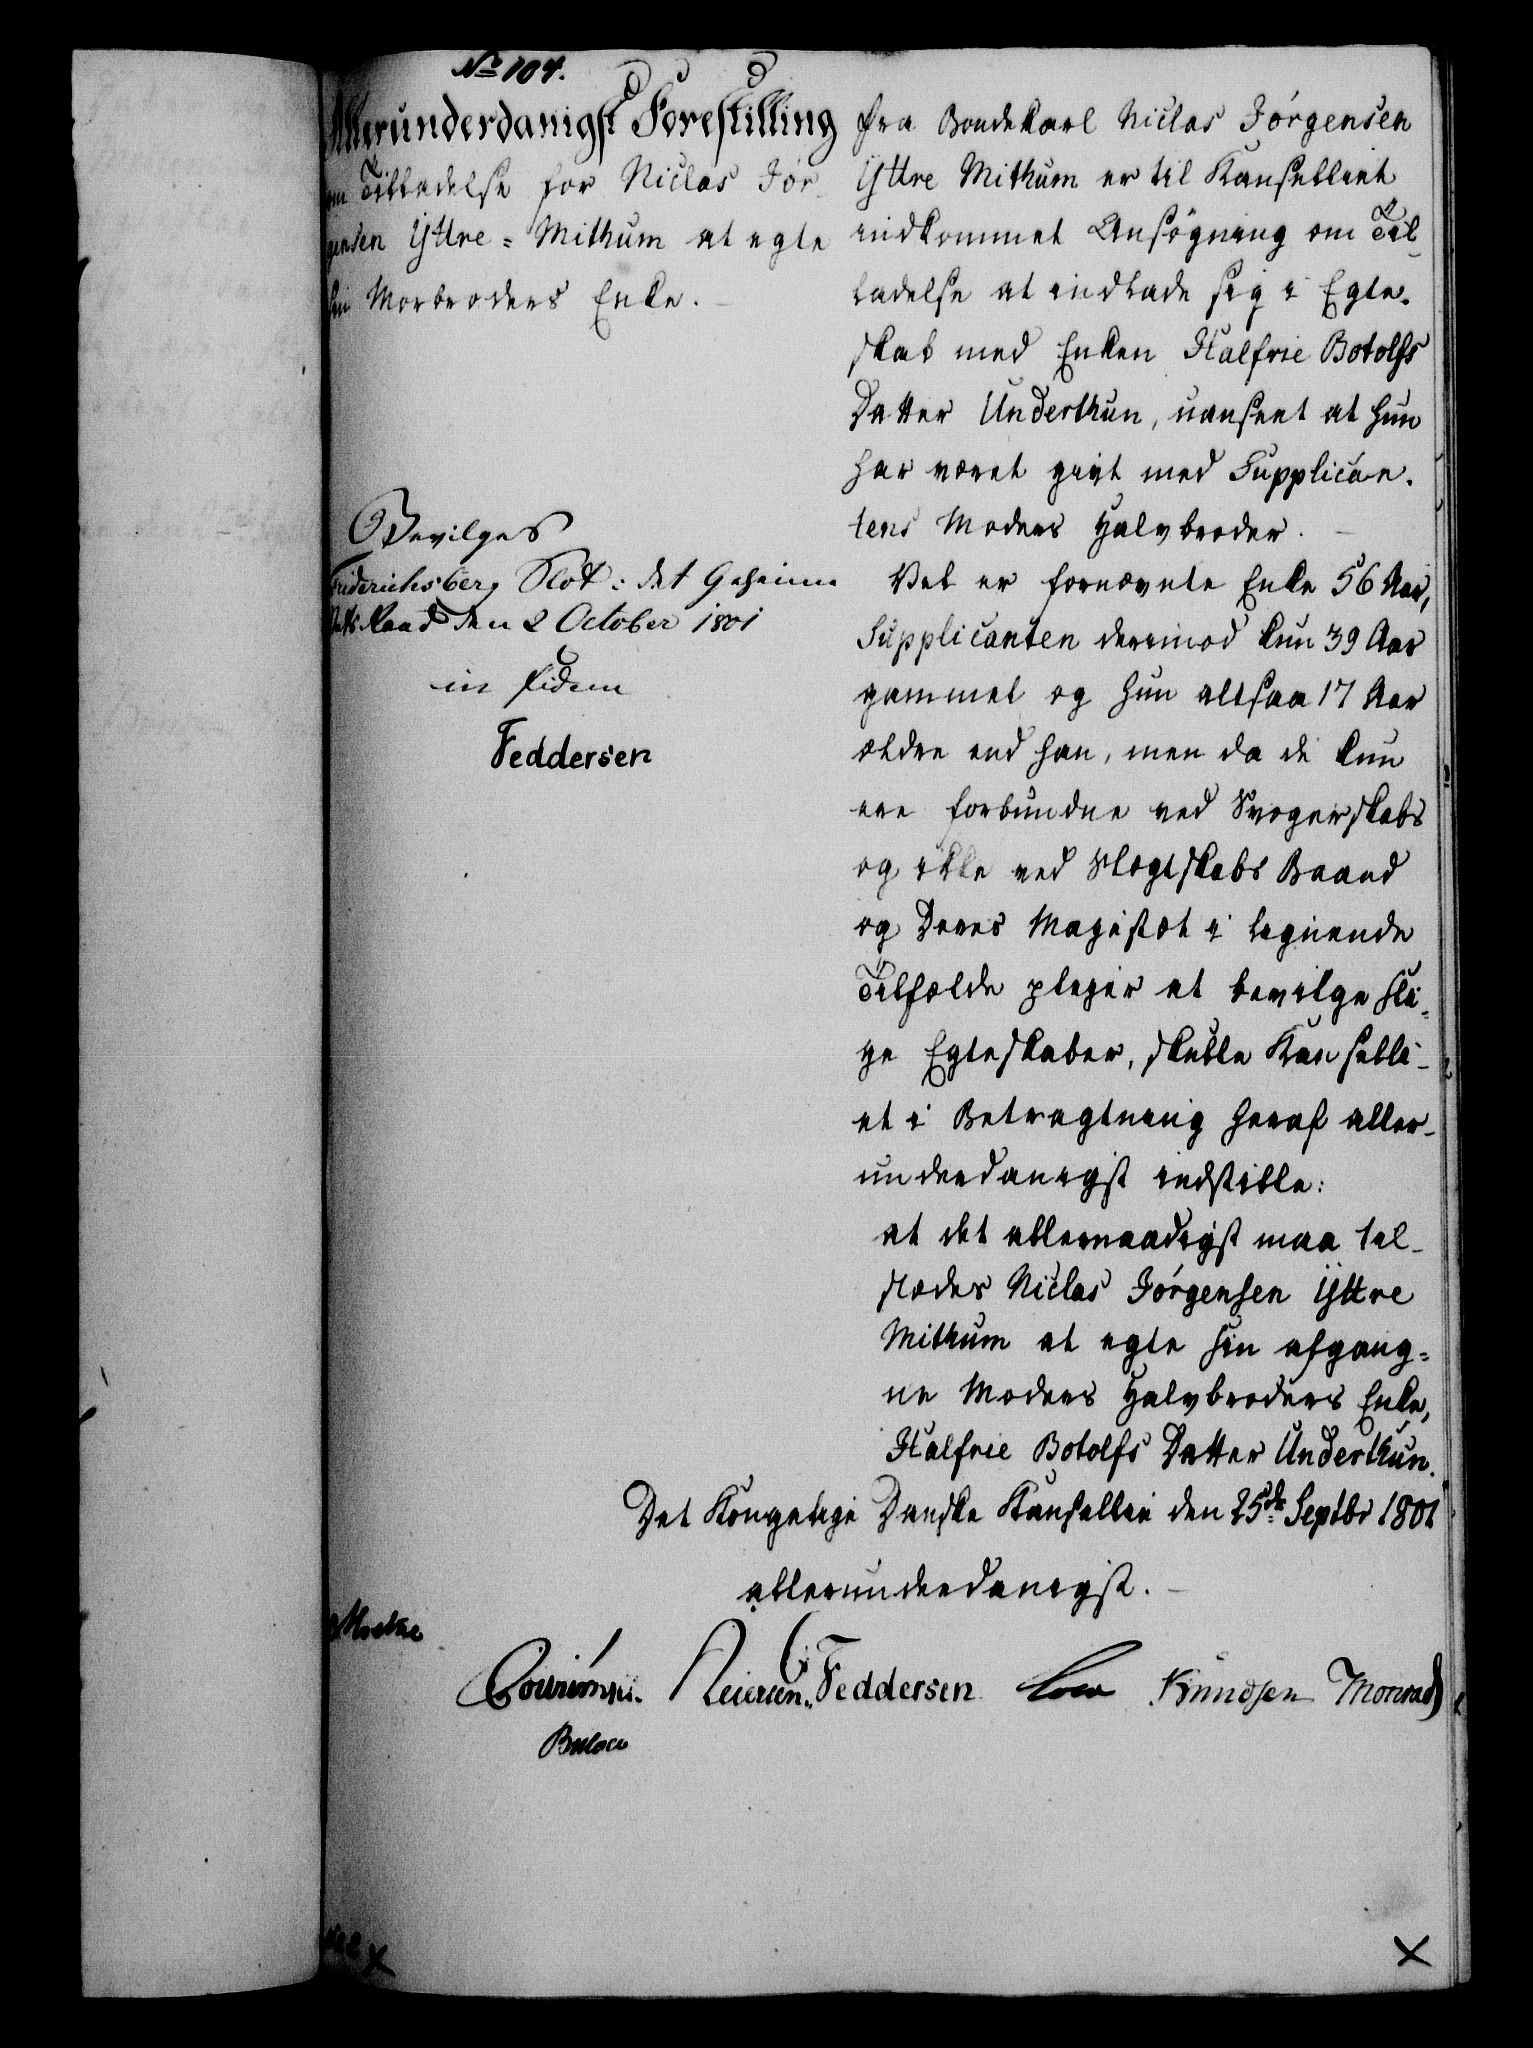 No 104.
Allerunderdanigst Forestilling
om Tilladelse for Niclas Jør-
gensen Yttre = Mithum at egte
sin Morbroders Enke.
Bevilges
Friderichsberg Slot i det Geheime
Raad den 2 October 1801
in fidem
Feddersen
Fra Bondekarl Niclas Jørgensen
Yttre Mithum er til Kanselliet
indkommet Ansøgning om Til-
ladelse at indlade sig i Egte-
skab med Enken Halfrie Botolfs
Datter Underthun, uanseet at hun
har været givt med Supplican-
tens Moders Halvbroder.
Vel er fornævnte Enke 56 Aar,
Supplicanten derimod kun 39 Aar
gammel og hun altsaa 17 Aar
ældre end han, men da de kun
ere forbundne ved Svogerskabs
og ikke ved Slægtskabs Baand
og Deres Majestæt i lignende
Tilfælde plejer at bevilge sli-
ge Egteskaber, skulle Kanselli-
et i Betragtning heraf aller-
underdanigst indstille:
at det allernaadigst maa til-
stædes Niclas Jørgensen Yttre
Mithum at egte sin afgang-
ne Moders Halvbroders Enke,
Halfrie Botolfs Datter Underthun.
Det Kongelige Danske Kansellie den 25de Septbr 1801
allerunderdanigst.
Moltke
Feddersen Knudsen Monrad
Bülow